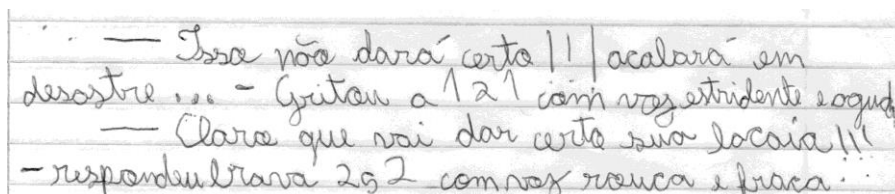 — Isso não dará certo!!! acabará em
desastre... - Gritou a 121 com voz estridente e aguda
— Claro que vai dar certo sua lacaia!!!
- respondeu brava 202 com voz rouca e fraca.